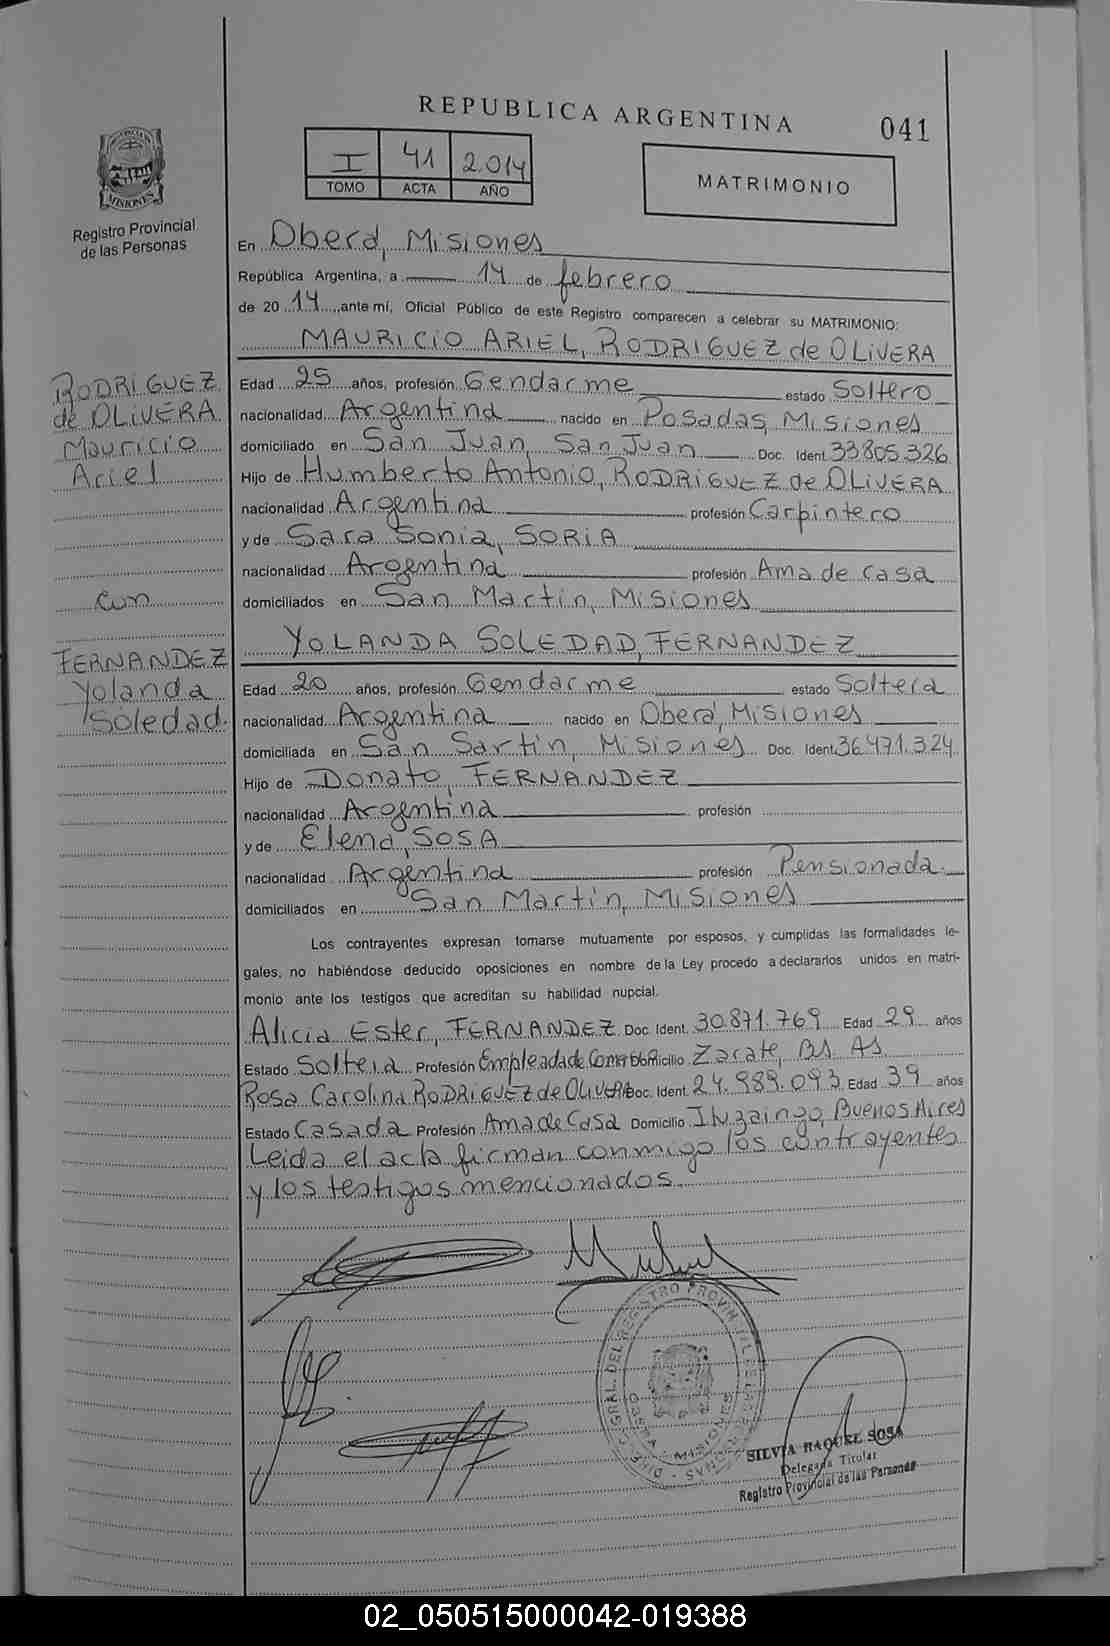 REPUBLICA ARGENTINA
041
I 41 2.014
TOMO ACTA AÑO
MATRIMONIO
MISIONES
Registro Provincial
de las Personas
En Oberá, Misiones
República Argentina, a 14 de febrero
de 20 14, ante mí, Oficial Público de este Registro comparecen a celebrar su MATRIMONIO:
MAURICIO ARIEL, RODRIGUEZ de OLIVERA
RODRIGUEZ
de OLIVERA
Mauricio
Ariel
Edad 25 años, profesión Gendarme estado Soltero
nacionalidad Argentina nacido en Posadas, Misiones
domiciliado en San Juan, San Juan Doc. Ident. 33.805.326
Hijo de Humberto Antonio, RODRIGUEZ de OLIVERA
nacionalidad Argentina profesión Carpintero
y de Sara Sonia, SORIA
nacionalidad Argentina profesión Ama de casa
domiciliados en San Martín, Misiones
con
YOLANDA SOLEDAD, FERNANDEZ
FERNANDEZ
Yolanda
Soledad.
Edad 20 años, profesión Gendarme estado Soltera
nacionalidad Argentina nacido en Oberá, Misiones
domiciliada en San Sartín, Misiones Doc. Ident. 36.471.324
Hijo de Donato, FERNANDEZ
nacionalidad Argentina profesión
y de Elena, SOSA
nacionalidad Argentina profesión Pensionada.
domiciliados en San Martín, Misiones
Los contrayentes expresan tomarse mutuamente por esposos, y cumplidas las formalidades le-
gales, no habiéndose deducido oposiciones en nombre de la Ley procedo a declararlos unidos en matri-
monio ante los testigos que acreditan su habilidad nupcial.
Alicia Ester, FERNANDEZ Doc. Ident. 30.871.769 Edad 29 años
Estado Soltera Profesión Empleada de Comer Domicilio Zarate, Bs As
Rosa Carolina RODRIGUEZ de OLIVERA Doc. Ident. 24.989.093 Edad 39 años
Estado Casada Profesión Ama de Casa Domicilio Ituzaingo, Buenos Aires
Leida el acta firman conmigo los contrayentes
y los testigos mencionados.
SILVIA RAQUEL SOSA
Delegada Titular
Registro Provincial de las Personas
02_050515000042-019388